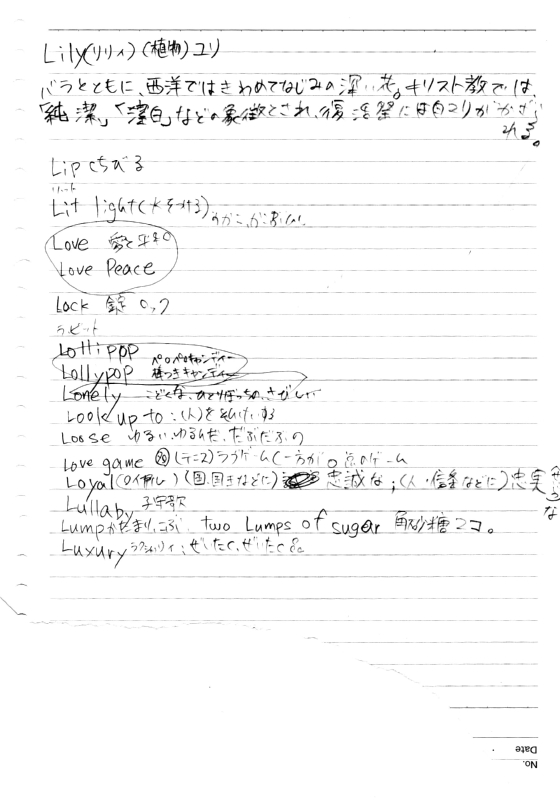 Lily(リリィ)(植物)ユリ
バラとともに、西洋ではきわめてなじみの深い花。キリスト教では、
「純潔」「潔白」などの象徴とされ、復活祭には白ユリがかざら
れる。
Lip くちびる
Lit light(火をつける)
Love 愛と平和
Love Peace
Lock 錠 ロック
ラビット
Lollipop ペロペロキャンディー
Lollypop 棒つきキャンディー
Lonely こどくな、ひとりぼっちの、さびしい
Look up to : (人)を
Loose ゆるい、ゆるんだ、だぶだぶの
Love game (テニス)ラブゲーム(一方が0点のゲーム
Loyal (国、国王などに) 忠誠な ; (人・信条などに)忠実
な
Lullaby 子守歌
Lump かたまり、こぶ two Lumps of sugar 角砂糖2コ。
Luxury ラグジュアリィ ; ぜいたく、ぜいたく品
Date
No.